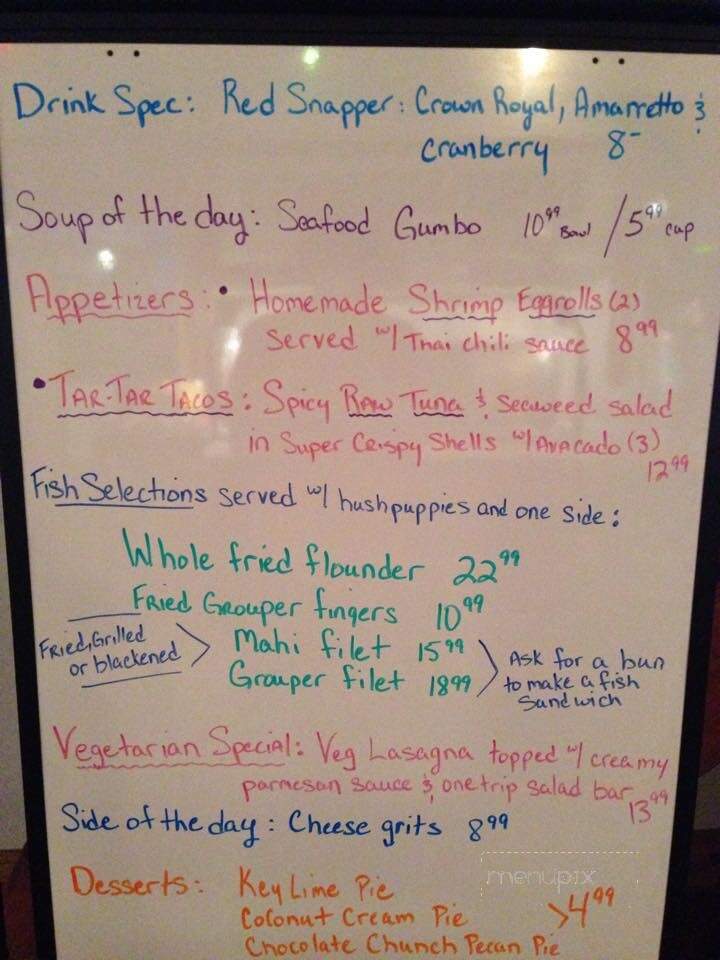 Drink Spec: Red Snapper: Crown Royal, Amarretto &
cranberry 8-
Soup of the day: Seafood Gumbo 10.99 Bowl / 5.99 cup
Appetizers: • Homemade Shrimp Eggrolls (2)
served w/ Thai chili sauce 8.99
• TAR-TAR TACOS: Spicy Raw Tuna & seaweed salad
in Super Crispy Shells w/ Avacado (3)
12.99
Fish Selections served w/ hushpuppies and one side:
Whole fried flounder 22.99
Fried Grouper fingers 10.99
Fried, Grilled
or blackened >
Mahi filet 15.99
Grouper filet 18.99
> Ask for a bun
to make a fish
sandwich
Vegetarian Special: Veg Lasagna topped w/ creamy
parmesan sauce & one trip salad bar
13.99
Side of the day: Cheese grits 8.99
menupix
Desserts: Key Lime Pie
Coconut Cream Pie >4.99
Chocolate Chunch Pecan Pie